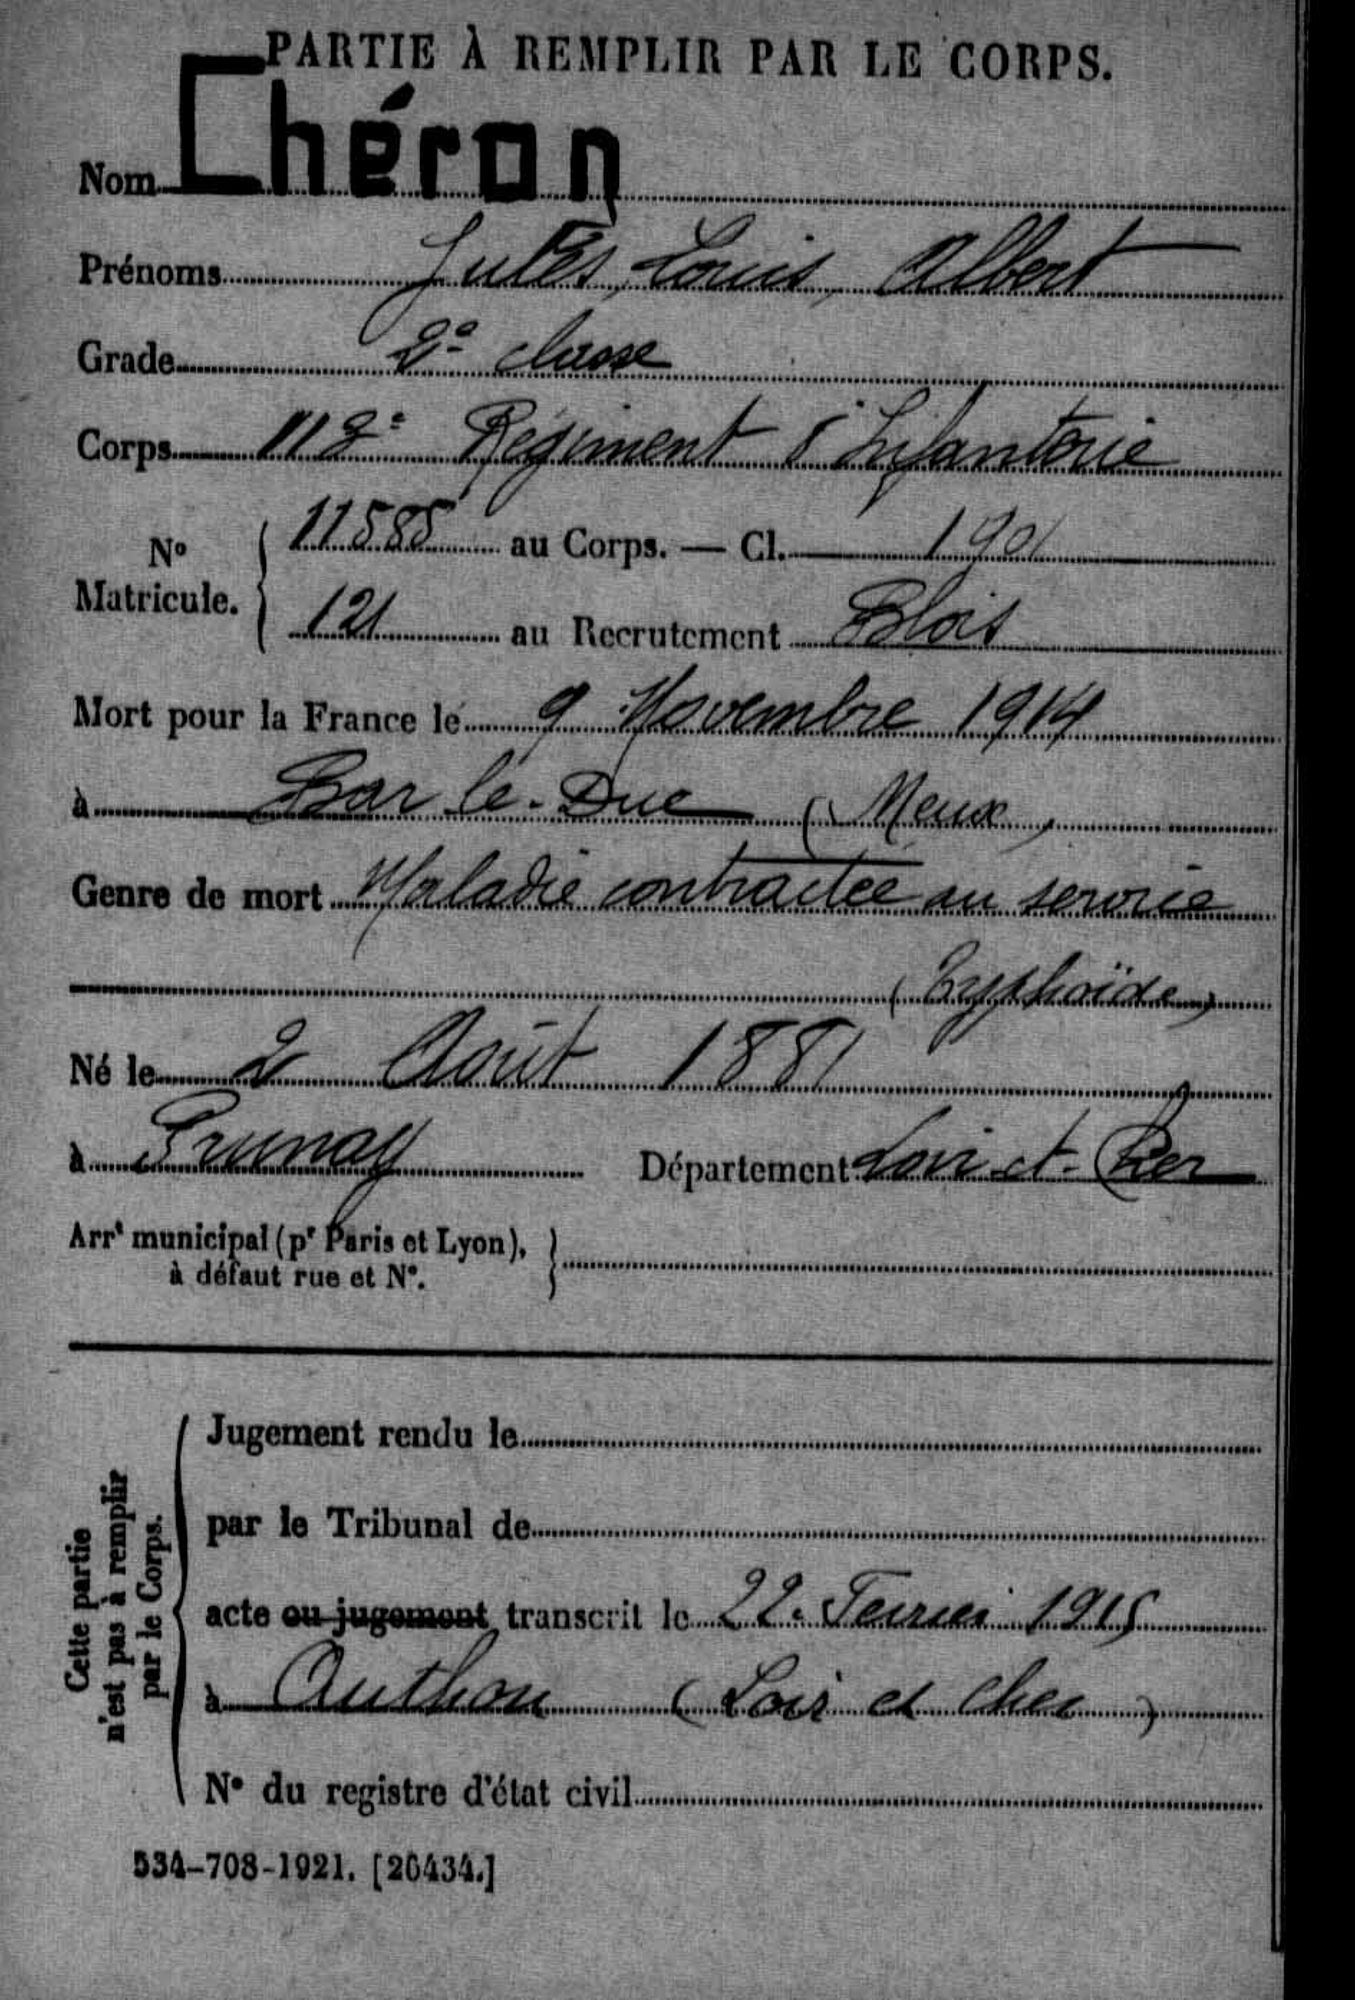 PARTIE À REMPLIR PAR LE CORPS.
Nom Chéron
Prénoms Jules, Louis, Albert
Grade 2e classe
Corps 112e Régiment d'Infanterie
No Matricule. 11585 au Corps. — Cl. 1901
121 au Recrutement Blois
Mort pour la France le 9 Novembre 1914
à Bar le-Duc (Meuse)
Genre de mort Maladie contractée au service
(Typhoïde)
Né le 2 Août 1881
à Prunay Département Loir-et-Cher
Arrt municipal (pr Paris et Lyon),
à défaut rue et N°.
Cette partie
n'est pas à remplir
par le Corps.
Jugement rendu le
par le Tribunal de
acte ou jugement transcrit le 22 Février 1915
à Authon (Loir et Cher)
N° du registre d'état civil
534-708-1921. [26434.]